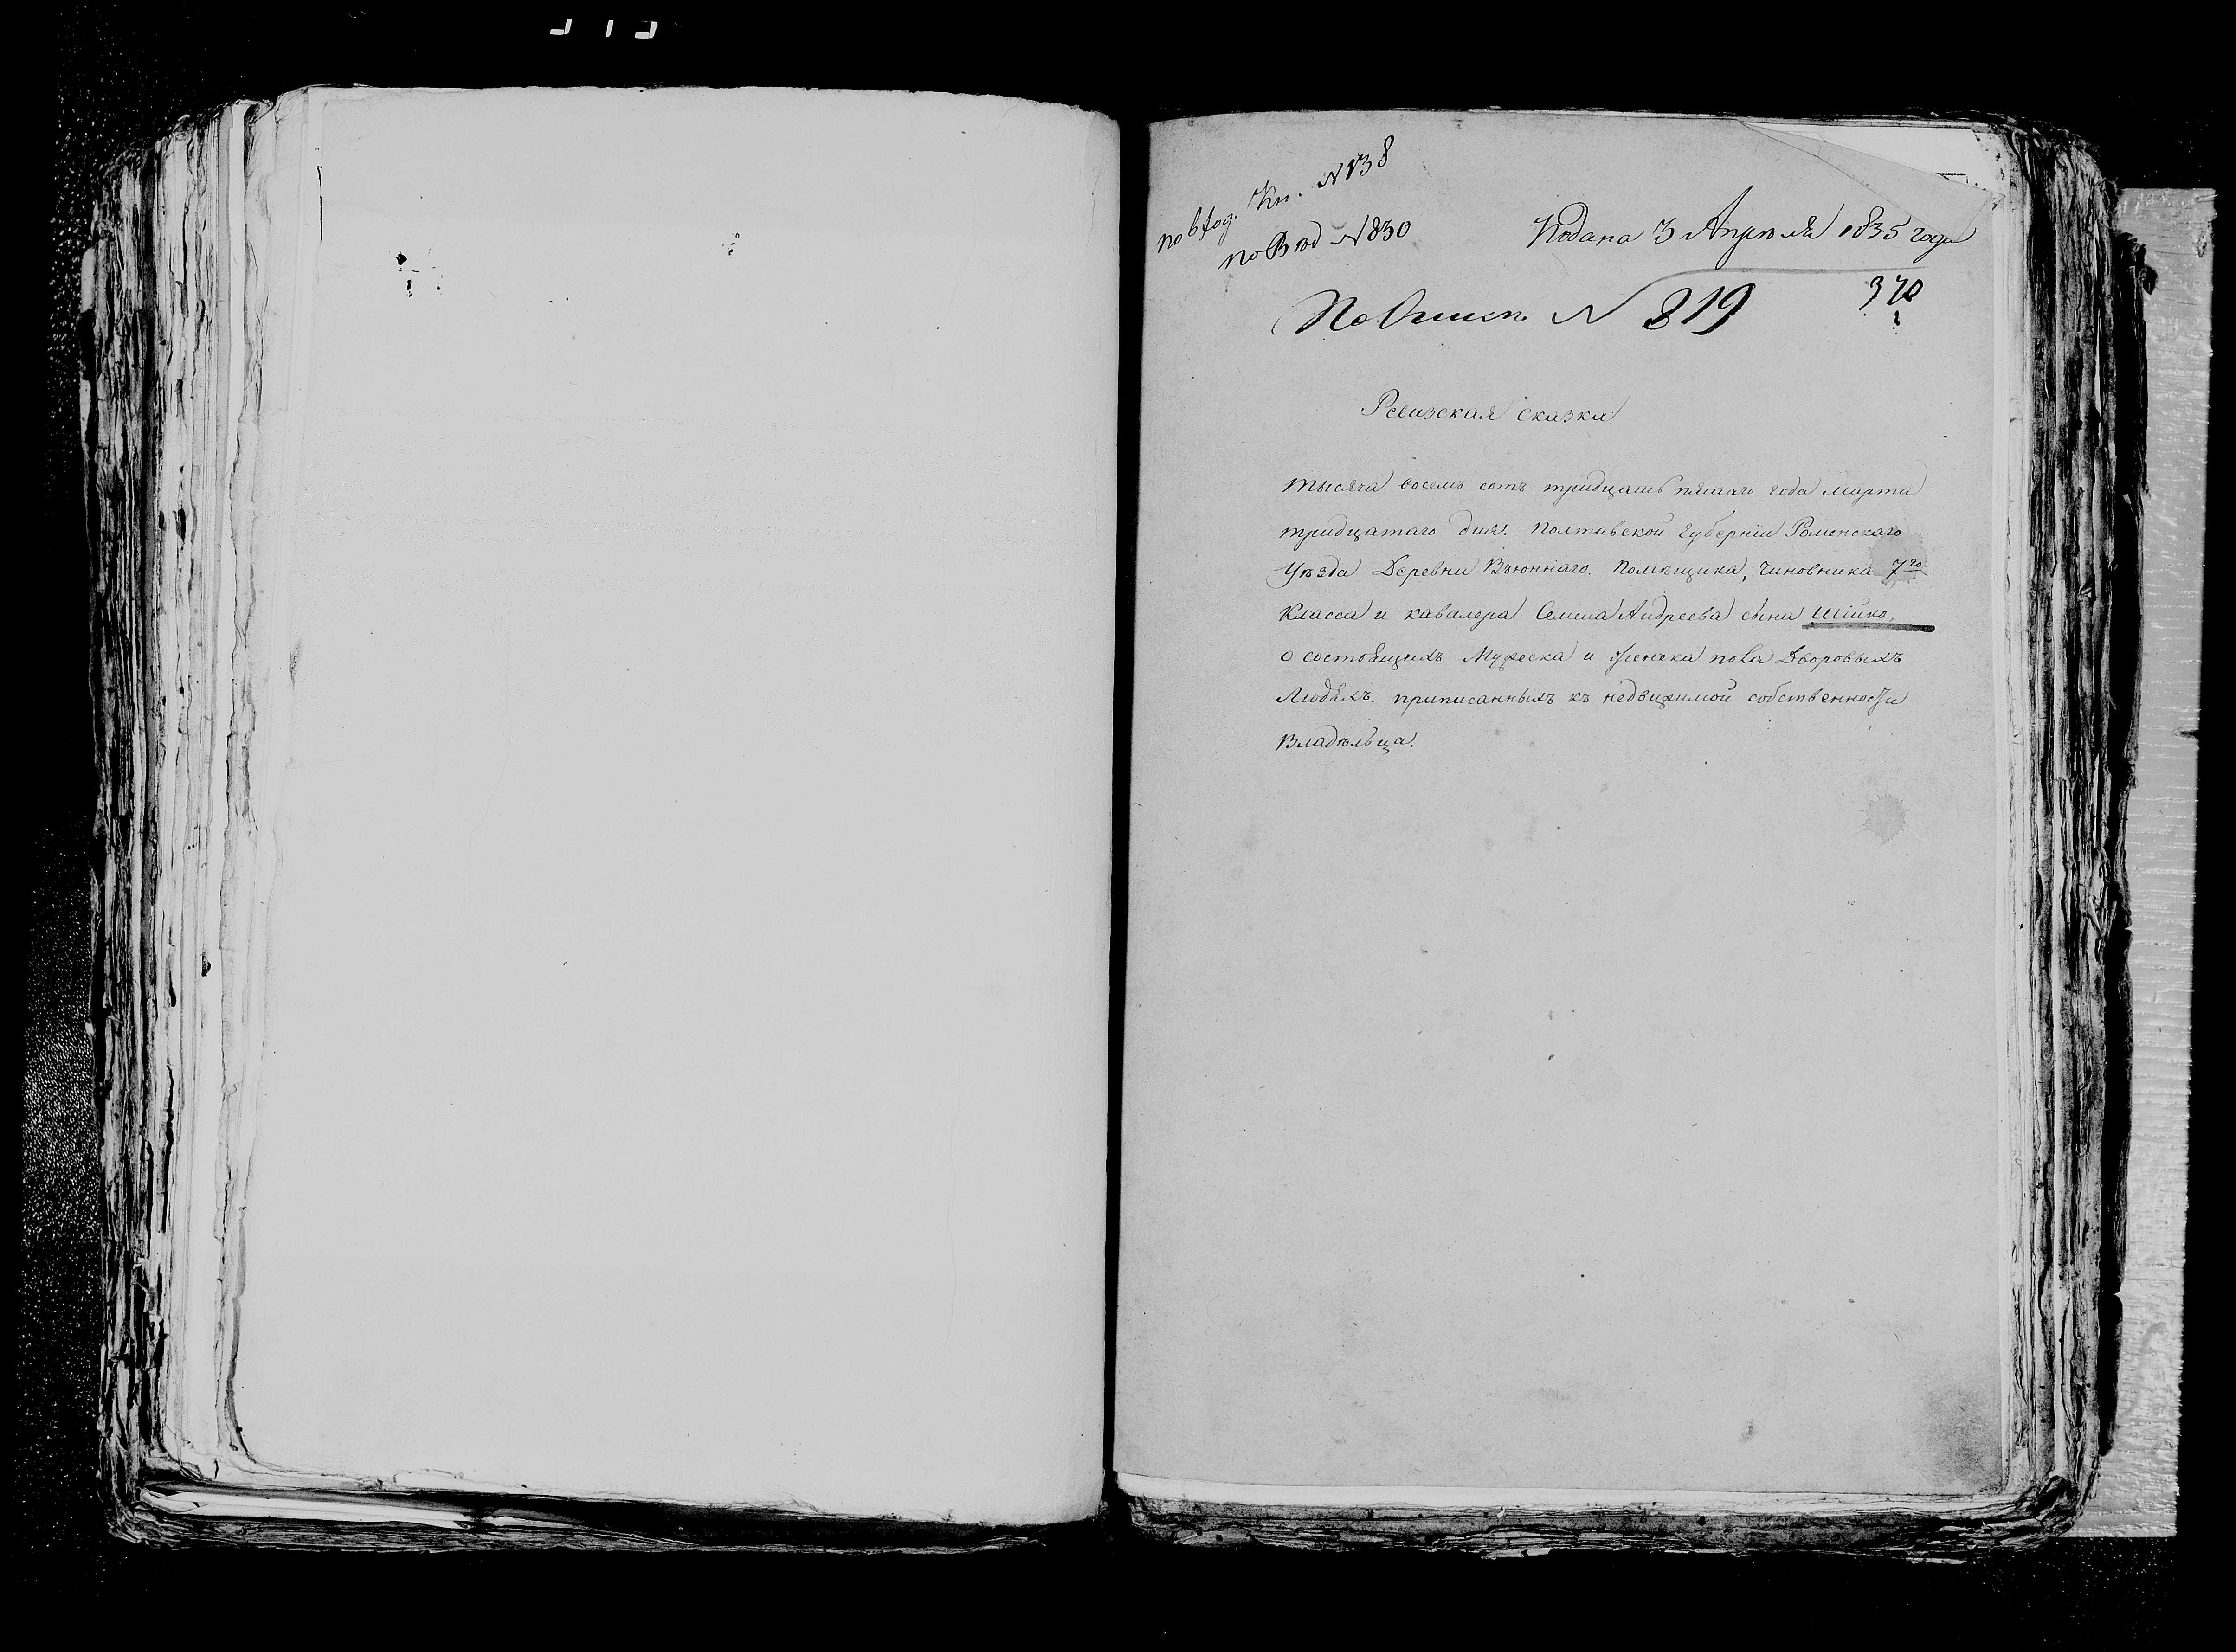 по вход. Кн. №138
по Вход №830
Подана 3 Апреля 1835 года
По Описи № 819
370
Ревизская сказка.
тысяча восемь сотъ тридцать пятаго года Марта
тридцатаго дня. Полтавской Губернiи Роменскаго
Уѣзда Деревни Вьюннаго. Помѣщика, чиновника 7го
Класса и кавалера Семена Андреева сына Шiйко,
о состоящихъ Мужеска и Женска пола Дворовыхъ
Людяхъ. приписанныхъ къ недвижимой собственности
Владѣльца.